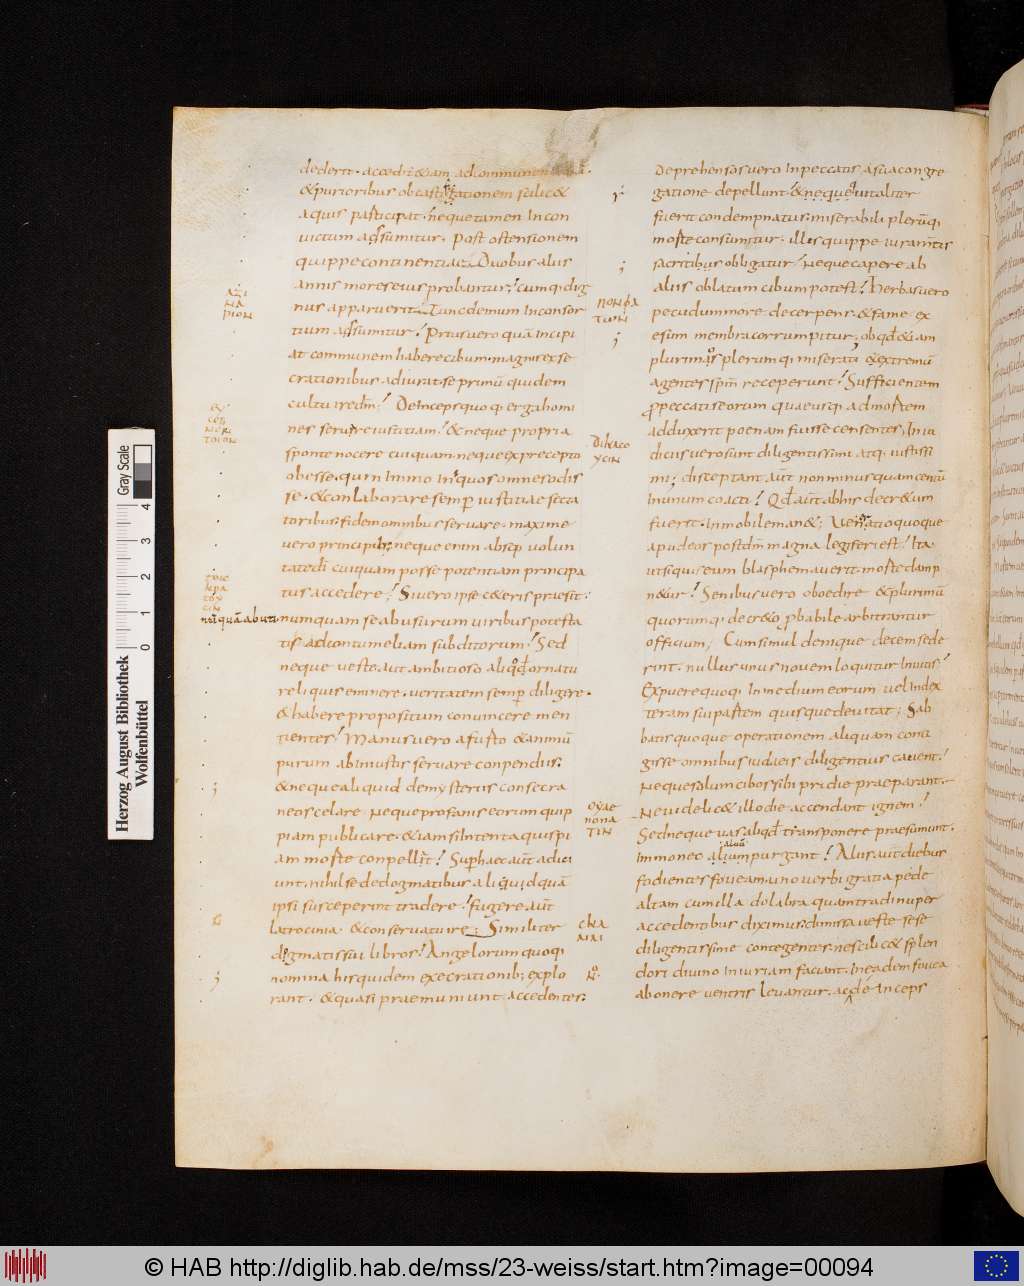 dederit. accedit & iam ad communem
& purioribus ob castigationem scilic&
aquis participat. neque tamen incon
victum assumitur. Post ostensionem
quippe continentiae. Duobus aliis
annis mores eius probantur; cumq; dig
nus apparuerit. Tunc demum in consor
tium assumitur. Prius vero quā incipi
at communem habere cibum. magnis exse
crationibus. adiurat se primū quidem
culturē dm̄. Deinceps quoq; erga homi
nes servare iustitiam. & neque propria
sponte nocere cuiquam. neque ex precepto
obesse. quin immo iniquos omnes odis
se. & conlaborare semper iustitiae secta
toribus. fidem omnibus servare. maxime
vero principib; neque enim absq; volun
tate dī cuiquam posse potentiam principa
tus accedere; Si vero ipse c&eris praesit.
numquam se abusurum viribus potesta
tis ad contumeliam subditorum. Sed
neque veste aut ambitioso aliquo ornatu
reliquis eminere. veritatem semp diligere.
& habere propositum convincere men
tientes. Manus vero a furto & animū
purum ab iniustis servare conpendiis;
& neque aliquid de mysteriis consecra
neis celare. neque profanis eorum quip
piam publicare. & iam si intenta quispi
am morte conpellat. Sup haec aut adici
unt. nihil se de dogmatibus aliquid quā
ipsi susceperint tradere. fugere aut
latrocinia. & conservature; Similiter
dogmatis sui libros. Angelorum quoq;
nomina his quidem execrationib; explo
rant. & quasi praemuniunt accedentes.
numquā abuti
Deprehensos vero in peccatis. a sua congre
gatione depellunt. & neque qui taliter
fuerit condempnatus. miserabili plerūq;
morte consumitur. illis quippe iuramtis
sacritibus obligatur. neque capere ab
aliis oblatum cibum potest. Herbas vero
pecudum more decerpens. & fame ex
esum membra corrumpitur. ob qd & iam
plurimos plerumq; miserati & extremū
agentes spm receperunt. Sufficientem
p peccatis eorum quae usq; ad mortem
adduxerit poenam fuisse censentes. In iu
diciis vero sunt diligentissimi atq; iustissi
mi; disceptant aut non minus quam centū
in unum coacti. Qd aut ab his decr&um
fuerit. inmobile man&; Veneratio quoque
apud eos post dm magna legiferi est. Ita
ut si quis eum blasphemaverit. morte damp
n&ur. Senibus vero oboedire & plurimū
quorumq; decr&o pbabile arbitrantur
officium; Cum simul denique decem sede
rint. nullus unus novem loquitur invitis.
Expuere quoq; in medium eorum vel in dex
teram sui partem quisque devitat; Sab
batis quoque operationem aliquam conti
gisse omnibus iudaeis diligentius cavent.
neque solum cibos sibi pridie praeparant.
ne videlic& illo die accendant ignem.
Sed neque vas aliqd transponere praesumunt.
Immo nec alvum purgant. Aliis aut diebus
fodientes foveam. uno verbi gratia pede
altam cum illa dolabra quam tradi nuper
accedentibus diximus. dimissa veste sese
diligentissime contegentes. ne scilic& splen
dori divino iniuriam faciant. In eadem fovea
ab onere ventris levantur. ac de inceps
Herzog August Bibliothek
Wolfenbüttel
Gray Scale
0 1 2 3 4
© HAB http://diglib.hab.de/mss/23-weiss/start.htm?image=00094